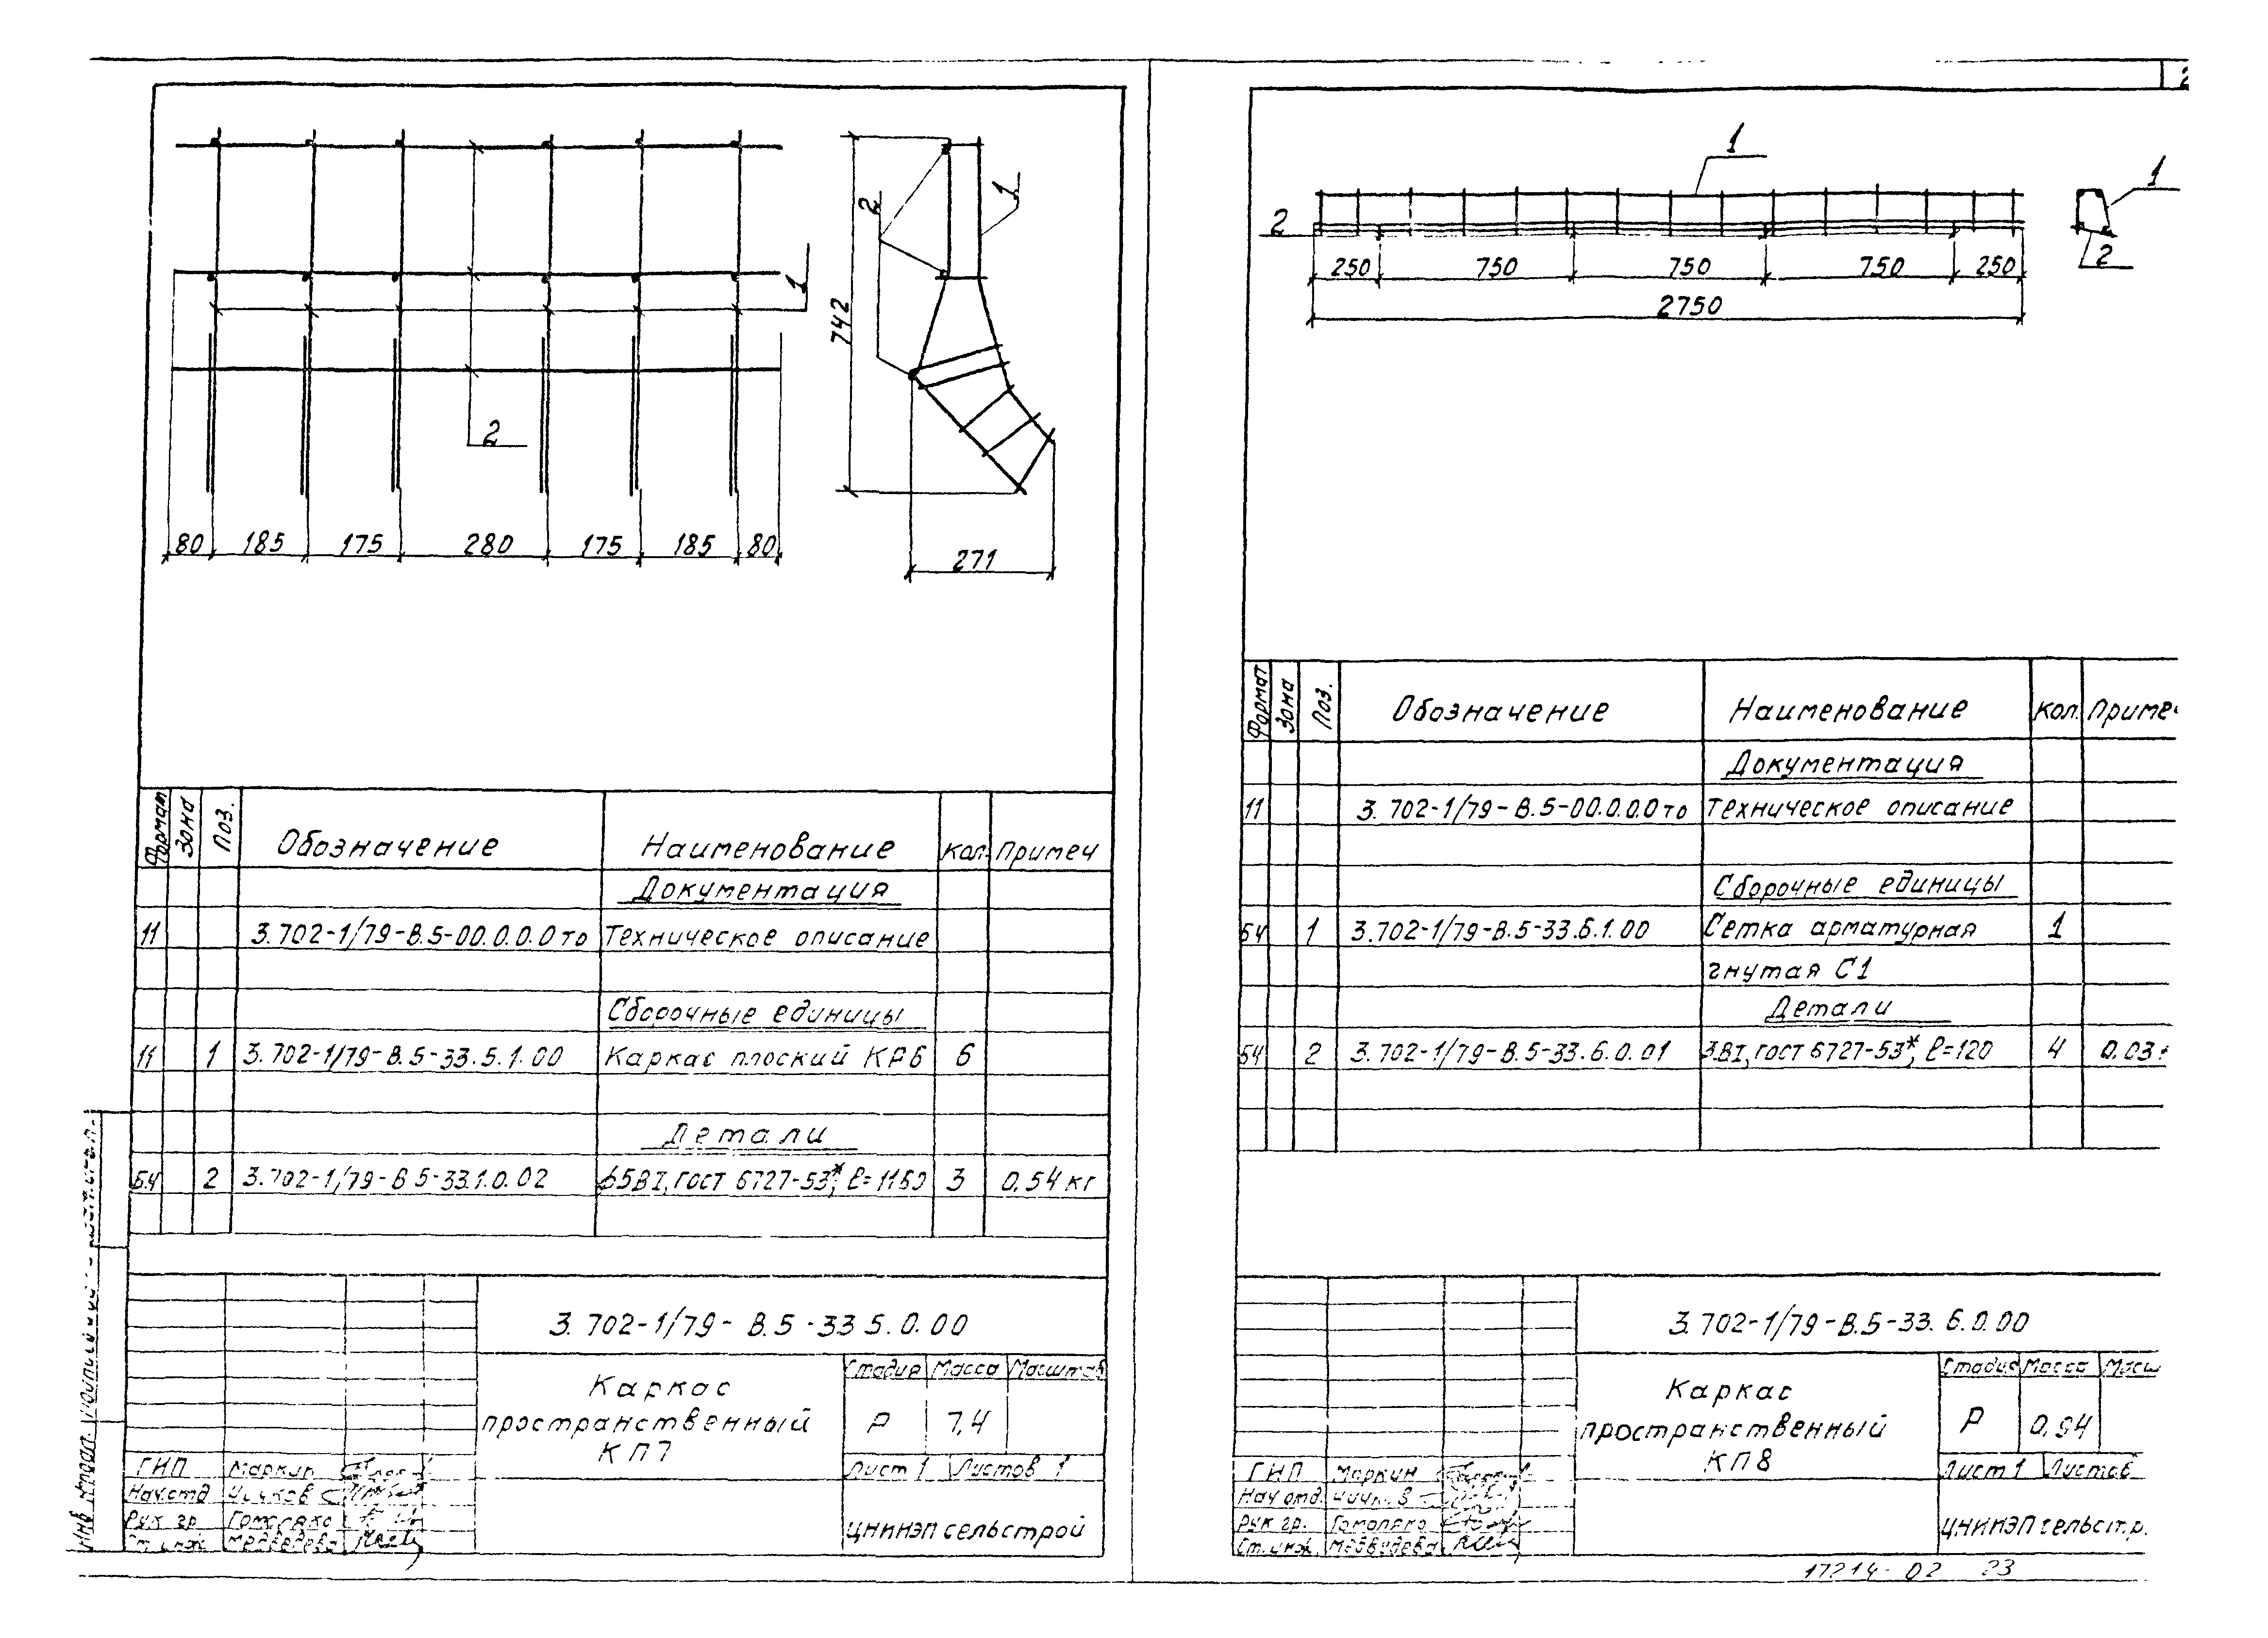 2
1
2
742
1
2
80 185 175 280 175 185 80
271
Формат Зона Поз. Обозначение Наименование Кол. Примеч
Документация
11 3.702-1/79-В.5-00.0.0.0то Техническое описание
Сборочные единицы
11 1 3.702-1/79-В.5-33.5.1.00 Каркас плоский КР6 6
Детали
Б4 2 3.702-1/79-В 5-33.1.0.02 ВI, ГОСТ 6727-53*, ℓ= 3 0.54 кг
3.702-1/79-В.5-33 5.0.00
Каркас
пространственный
КП7
Стадия Масса Масштаб
Р 7,4
Лист 1 Листов 1
ГИП Маркин
Нач.отд
Рук гр.
Ст. инж. Медведева
ЦНИИЭПсельстрой
Инв № подл.
1
1
2
2
250 750 750 750 250
2750
Формат Зона Поз. Обозначение Наименование Кол. Примеч
Документация
11 3.702-1/79-В.5-00.0.0.0то Техническое описание
Сборочные единицы
Б4 1 3.702-1/79-В.5-33.6.1.00 Сетка арматурная 1
гнутая С1
Детали
Б4 2 3.702-1/79-В.5-33.6.0.01 3ВI, ГОСТ 6727-53*, ℓ=120 4 0.03
3.702-1/79-В.5-33.6.0.00
Каркас
пространственный
КП8
Стадия Масса Масш
Р 0,54
Лист 1 Листов
ГИП Маркин
Нач отд.
Рук гр.
Ст. инж. Медведева
17214-02 23